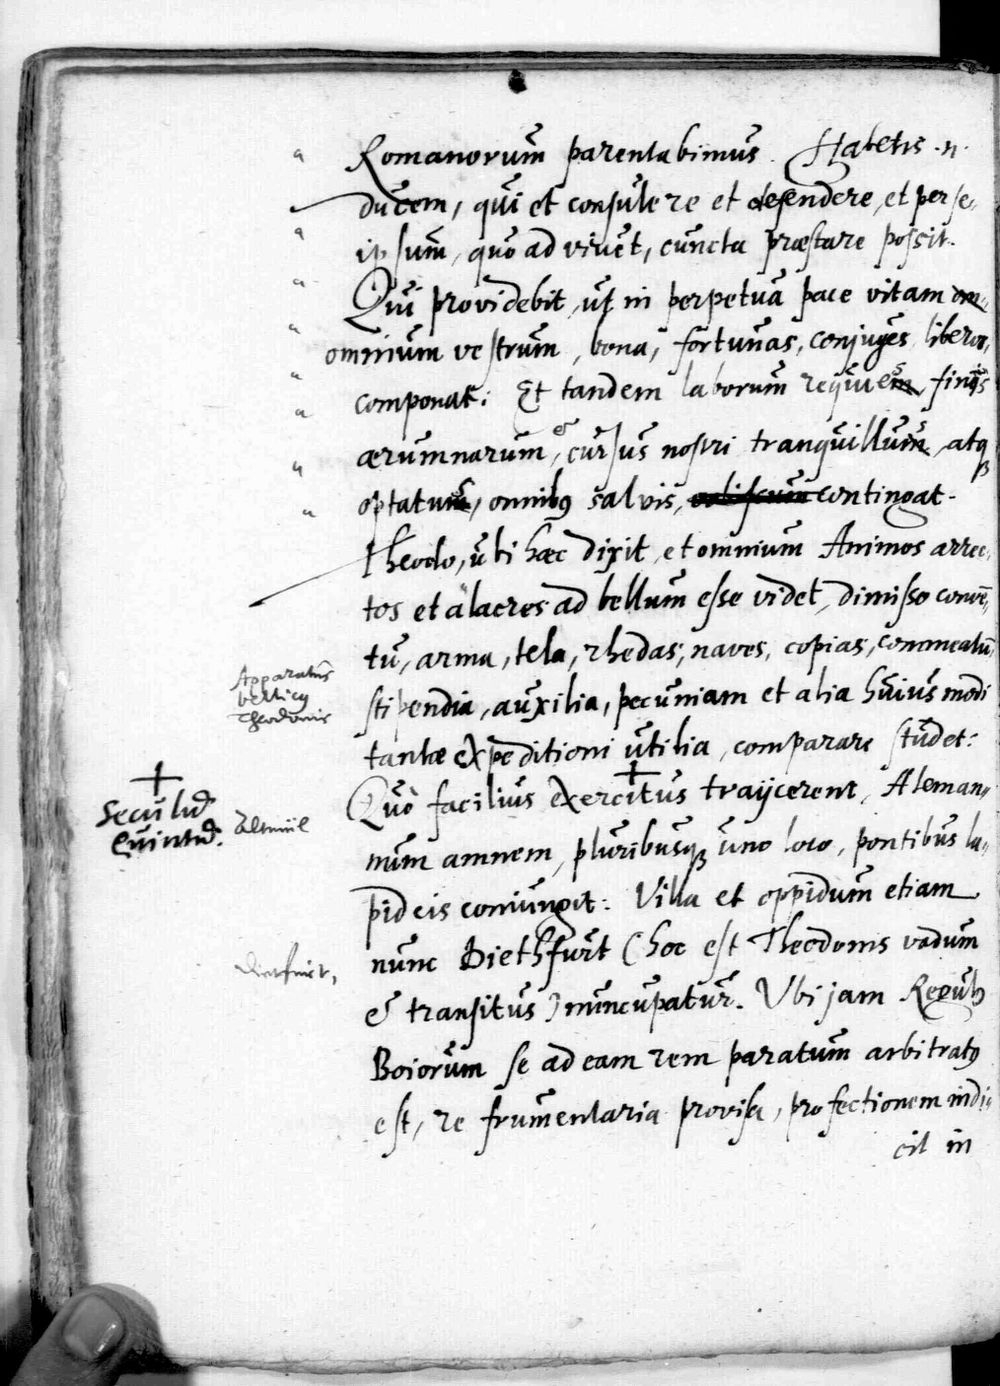 Romanorum parentabimus. Habetis .n.
ducem, qui et consulere et defendere, et per se
ipsum, quo ad vivet, cuncta præstare possit.
Qui providebit, ut in perpetua pace vitam om-
omnium vestrum, bona, fortunas, conjuges liberos,
componat: Et tandem laborum requiem, finis
ærumnarum, et cursus nostri tranquillum, atq
optatum, omnibq salvis, contingat.
Theodo, uti hæc dixit, et omnium Animos arrec-
tos et alacres ad bellum esse videt, dimisso conve-
tu, arma, tela, rhedas, naves, copias, commeatu,
stipendia, auxilia, pecuniam et alia huius modi
tantæ expeditioni utilia, comparare studet:
Quò facilius exercitus traijcerent, Aleman-
num amnem, pluribusq uno loco, pontibus la-
pideis coniungit: Villa et oppidum etiam
nunc Diethfurt (hoc est Theodonis vadum
& transitus) nuncupatur. Ubi jam Regulq
Boiorum se ad eam rem paratum arbitratq
est, re frumentaria provisa, profectionem indi-
cit in
Apparatus
bellicq
Theodonis
+
Altmül
Dietfurt,